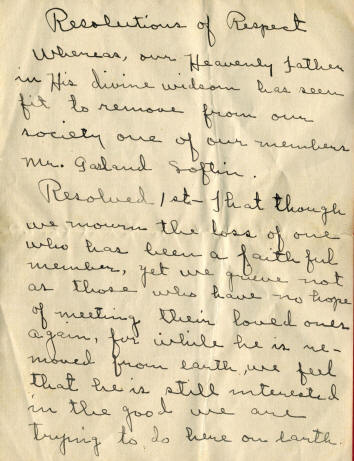 Resolutions of Respect
Whereas, our Heavenly Father
in His divine wisdom has seen
fit to remove from our
society one of our members
Mr. Garland Softin.
Resolved 1st - That though
we mourn the loss of one
who has been a faithful
member, yet we grieve not
as those who have no hope
of meeting their loved ones
again, for while he is re-
moved from earth, we feel
that he is still interested
in the good we are
trying to do here on earth.